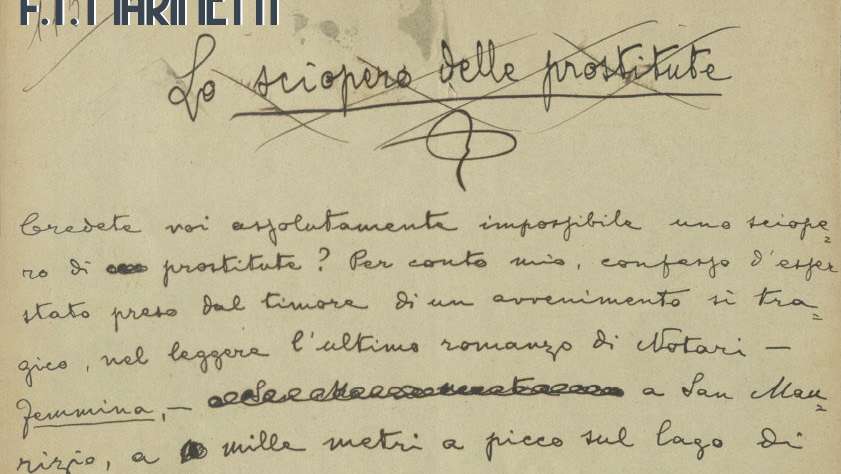 F.T. MARINETTI
Lo sciopero delle prostitute
Credete voi assolutamente impossibile uno sciope=
ro di prostitute? Per conto mio, confesso d'esser
stato preso dal timore di un avvenimento sì tra=
gico, nel leggere l'ultimo romanzo di Notari —
Femmina, — a San Mau=
rizio, a mille metri a picco sul lago di